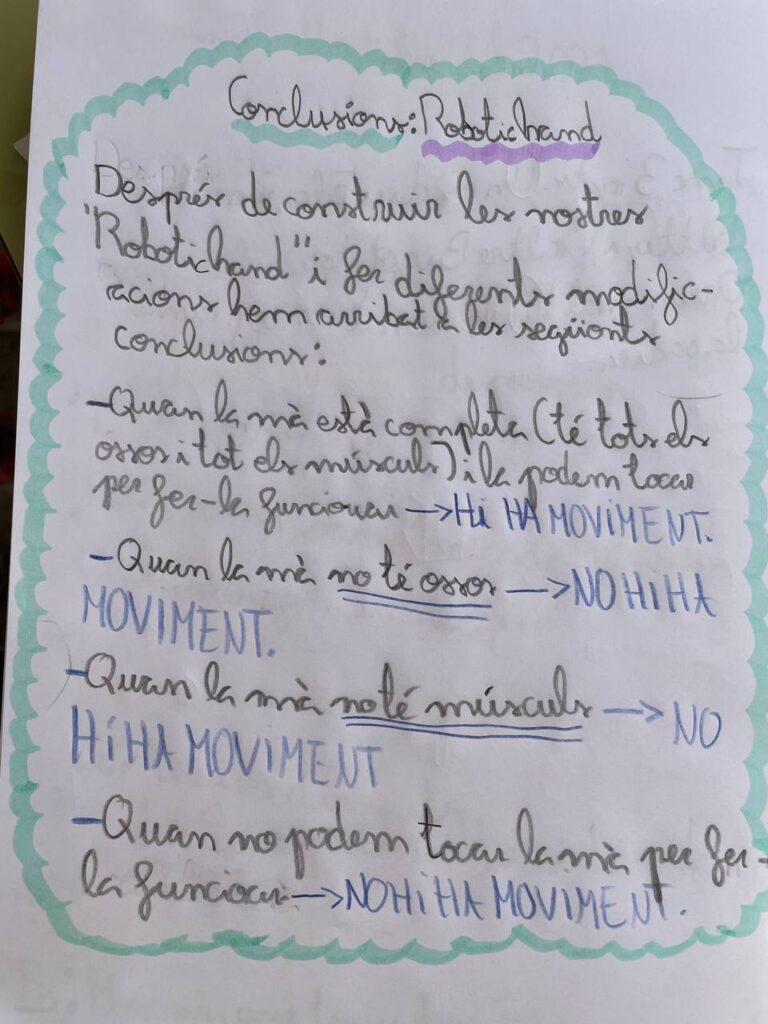 Conclusions: Robotichand
Després de construir les nostres
"Robotichand" i fer diferents modific-
acions hem arribat a les següents
conclusions:
-Quan la mà està completa (té tots els
ossos i tot els músculs) i la podem tocar
per fer-la funcionar → Hi HA MOVIMENT.
-Quan la mà no té ossos → NO HI HA
MOVIMENT.
-Quan la mà no té músculs → NO
HI HA MOVIMENT
-Quan no podem tocar la mà per fer-
la funcioar → NO HI HA MOVIMENT.